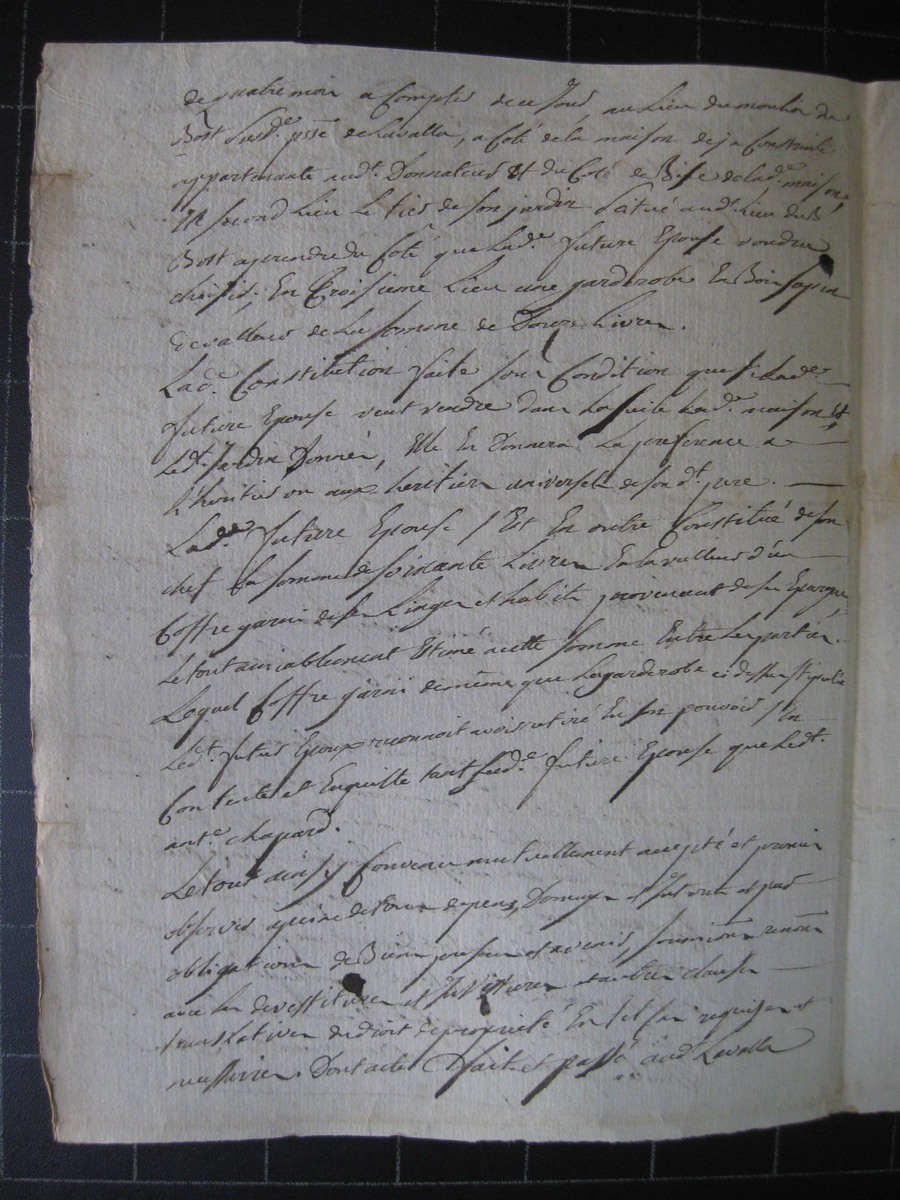 de quatre mois a Compter de ce Jour, au Lieu du moulin du
Bost Susd.e psse de Lavalla, a Coté de la maison deja Construite
appartenante aud.t Donnateur et du Coté de Bise de lad.e maison,
En second Lieu Le tier de son jardin Situé aud.t Lieu du
Bost a prendre du Coté que Lad.e future Epouse voudra
choisir; En Troisieme Lieu une garderobe En Bois sapin
de valleur de La somme de Douze Livres.
Lad.e Constitution faite sous Condition que si Lad.e
future Epouse veut vendre dans La suite Lad.e maison et
Led.t Jardin Donnés, Elle En Donnera La preference a
l'heritier ou aux heritiers universels de son d.t pere.
Lad.e future Epouse s'Est En outre Constitué de son
chef La somme de soixante Livres En la valleur d'un
Coffre garni de ses Linges et habits provenant de ses Epargnes
Le tout amiablement Estimé a cette somme Entre Les parties.
Lequel Coffre garni de même que La garderobe ci dessus stipulée
Led.t futur Epoux reconnoit avoir retiré En son pouvoir s'En
Contente et En quitte tant Lad.e future Epouse que Led.t
ant.e chapard.
Le tout ainsy Convenu mutuellement accepté et promis
observer a peine de tous depens, Dommages et Interets et par
obligations de Biens presens et avenir, soumissions renon
avec Les devestitures et Investitures et autres clauses
translatives de droit de proprieté En tel cas requises et
necessaires. Dont acte Fait et passé aud.t Lavalla